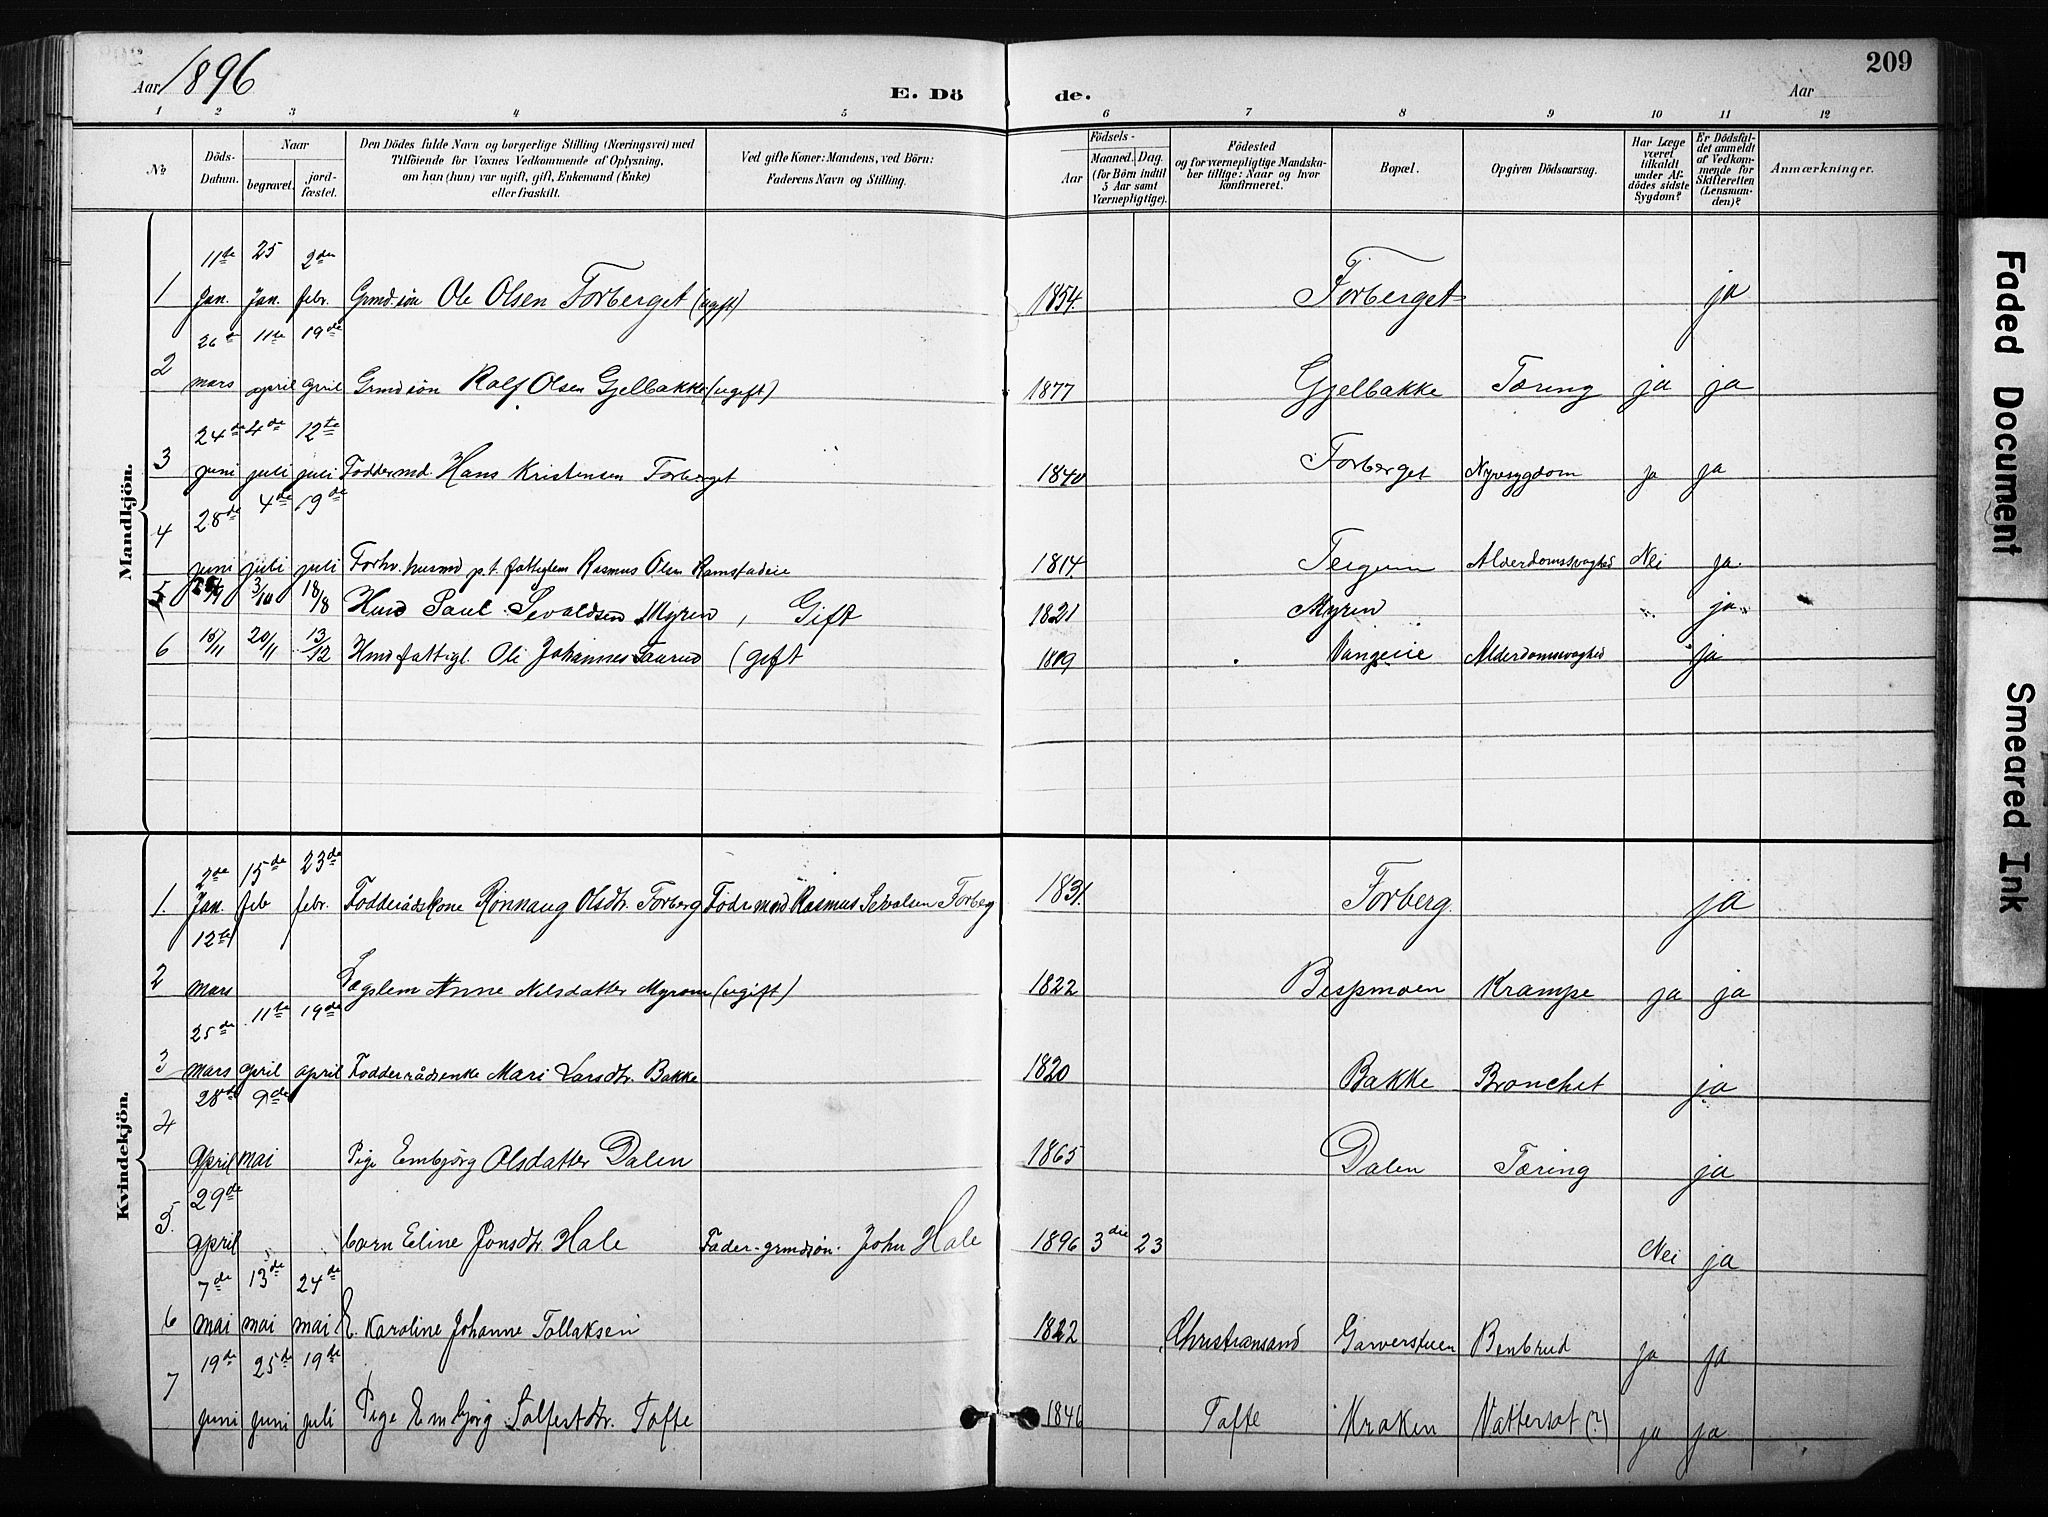 Aar 1896
E. Dö de.
Aar
209
1 2 3 4 5 6 7 8 9 10 11 12
№
Döds-Datum.
Naar
begravet.
jord-fæstet.
Den Dödes fulde Navn og borgerlige Stilling (Næringsvei) med
Tilföiende for Voxnes Vedkommende af Oplysning,
om han (hun) var ugift, gift, Enkemand (Enke)
eller fraskilt.
Ved gifte Koner: Mandens, ved Börn:
Faderens Navn og Stilling.
Födsels-
Aar
Maaned. Dag.
(for Börn indtil
5 Aar samt
Værnepligtige).
Födested
og for værnepligtige Mandska-
ber tillige: Naar og hvor
konfirmeret.
Bopæl.
Opgiven Dödsaarsag.
Har Læge
været
tilkaldt
under Af-
dödes sidste
Sygdom?
Er Dödsfal-
det anmeldt
af Vedkom-
mende for
Skifteretten
(Lensman-
den)?
Anmærkninger.
Mandkjön.
11te 25 2den
1 Jan. Jan. febr. Grmd.søn Ole Olsen Forberget (ugift) 1854. Forberget ja
26de 11te 19de
2 mars april april Grmdsøn Rolf Olsen Gjelbakke (ugift) 1877 Gjelbakke Tæring ja ja
24de 4de 12te
3 juni juli juli Foddermd Hans Kristensen Forberget 1840 Forberget Nyresygdom ja ja
28de 4de 19de
4 juni juli juli Forhv. husmd p.t. fattiglem Rasmus Olsen Ramstadeie 1814. Teigum Alderdomssvaghed Nei ja.
5 3/10 18/8 Hmd Paul Sevaldsen Myren, Gift 1821 Myren " ja
6 16/11 20/11 13/12 Hmd fattigl. Ole Johannes Aaarud (gift 1819 Vangeie Alderdomssvaghed ja
Kvindekjön.
2de 15de 23de
1. Jan. feb febr. Fodderådskone Rønnaug Olsdtr. Forberg Fodrmand Rasmus Sevalsen Forberg 1831. Forberg. ja
12te
2 mars Lægslem Anne Nilsdatter Myrom (ugift) 1822 Bispmoen Krampe ja ja
25de 11te 19de
3 mars april april Fodderrådsenke Mari Larsdtr. Bakke 1820 Bakke Bronchet ja
28de 9de
4 april mai Pige Embjørg Olsdatter Dalen 1865 Dalen Tæring ja
29de
5. april barn Eline Jonsdtr. Hale Fader-grmdsøn. John Hale 1896 3die 23 Nei ja
7de 13de 24de
6 mai mai mai E. Karoline Johanne Tollaksen 1822 Christiansand Garverstuen Benbrud ja ja
19de 25de 19de
7 juni juni juli Pige Embjørg Solfestdtr. Tofte 1846 Tofte Kraken Vattersot (?) ja ja
Faded Document
Smeared Ink